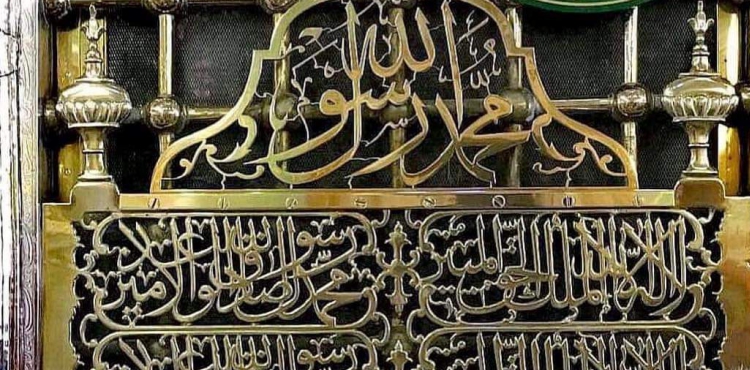 محمد رسول الله
لا اله الا الله الملك الحق المبين
محمد رسول الله الصادق الوعد الامين